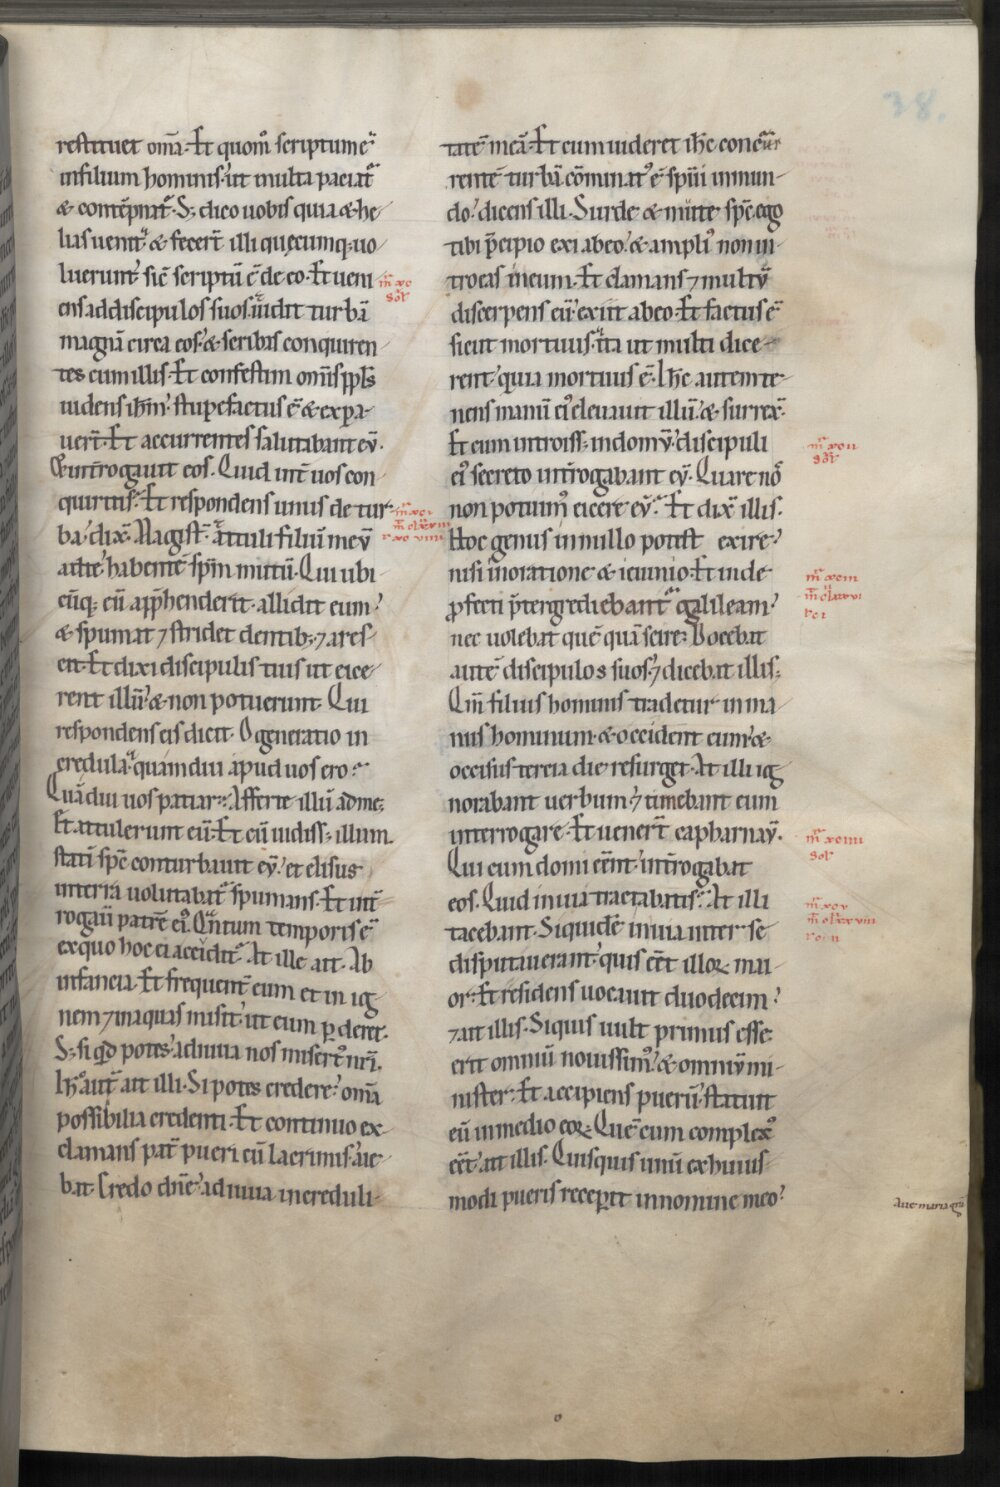 38.
restituet om̄a. Et quom̊ scriptum ē
in filium hominis. ut multa paciat᷑
& contēpnat᷑. S; dico uobis quia & he
lias uenit. & fecer̄t illi quęcumq; uo
luerunt. sic̄ scriptū ē de eo. Et ueni
ens ad discipulos suos. uidit turbā
magnā circa eos. & scribas conquiren
tes cum illis. Et confestim om̄is ppl̄s
uidens ih̄m. stupefactus ē & expa
uer̄t. Et accurrentes salutabant eū.
Et int̄rogauit eos. Quid int̄ uos con
quiritis. Et respondens unus de tur
ba. dix̄. Magist̄. attuli filiū meū
ad te habentē sp̄m mutū. Qui ubi
cūq; eū app̄henderit. allidit eum.
& spumat ⁊ stridet dentib; ⁊ ares
cit. Et dixi discipulis tuis ut eice
rent illū. & non potuerunt. Qui
respondens eis dicit. O generatio in
credula. quamdiu apud uos ero.
Quādiu uos patiar. Afferte illū ad me.
Et attulerunt eū. Et cū uidiss; illum.
statī sp̄c conturbauit eū. et elisus
in terrā uolutabat᷑ spumans. Et int̄
rogauī patrē ei᷒. Q̄ntum temporis ē
ex quo hoc ei accidit. At ille ait. Ab
infancia. Et frequent̄ eum et in ig
nem ⁊ in aquas misit. ut eum ꝑderet.
S; si qd̄ potes adiuua nos misert᷒ nr̄i.
Ih̄c aut̄ ait illi. Si potes credere. om̄a
possibilia credenti. Et continuo ex
clamans pat̄ pueri cū lacrimis. aie
bat. Credo dn̄e. adiuua increduli
tatē meā. Et cum uideret ih̄c concur
rentē turbā. cōminat᷒ ē sp̄ui inmun
do. dicens illi. Surde & mute sp̄c. ego
tibi p̄cipio exi ab eo. & ampli᷒ non in
troeas in eum. Et clamans ⁊ multū
discerpens eū. exiit ab eo. Et factus ē
sicut mortuus. ita ut multi dice
rent. quia mortuus ē. Ih̄c autem te
nens manū ei᷒ eleuauit illū. & surrex̄.
Et cum introiss; in domū. discipuli
ei᷒ secreto int̄rogabant eū. Quare nō
non potuim᷒ eicere eū. Et dix̄ illis.
Hoc genus in nullo potest exire.
nisi in oratione & ieiunio. Et inde
ꝓfecti p̄tergrediebant᷑ galileam.
nec uolebat quē quā scire. Docebat
autē discipulos suos. ⁊ dicebat illis.
Qm̄ filius hominis tradetur in ma
nus hominum. & occident eum. &
occisus tercia die resurget. At illi ig
norabant uerbum. ⁊ timebant eum
interrogare. Et uener̄t capharnaū.
Qui cum domi eēnt. int̄rogabat
eos. Quid in uia tractabatis. At illi
tacebant. Siquidē in uia inter se
disputauerant. quis eēt illoꝝ mai
or. Et residens uocauit duodecim.
⁊ ait illis. Siquis uult primus esse.
erit omniū nouissim᷒. & omniū mi
nister. Et accipiens puerū. statuit
eū in medio eoꝝ. Quē cum complex᷒
eēt. ait illis. Quisquis unū ex huius
modi pueris receꝑit in nomine meo.
Aue maria